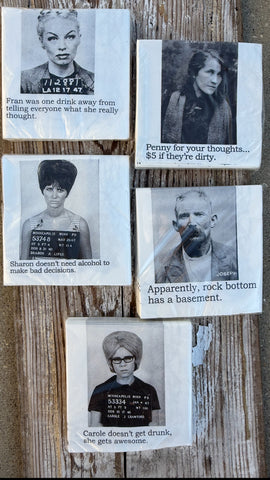 11288
LA 12 17 47
Fran was one drink away from
telling everyone what she really
thought.
Penny for your thoughts...
$5 if they're dirty.
MINNEAPOLIS MINN PD
53748
SHARON A
Sharon doesn't need alcohol to
make bad decisions.
JOSEPH
Apparently, rock bottom
has a basement.
MINNEAPOLIS MINN PD
53334
CAROLE J CRAWFORD
Carole doesn't get drunk,
she gets awesome.